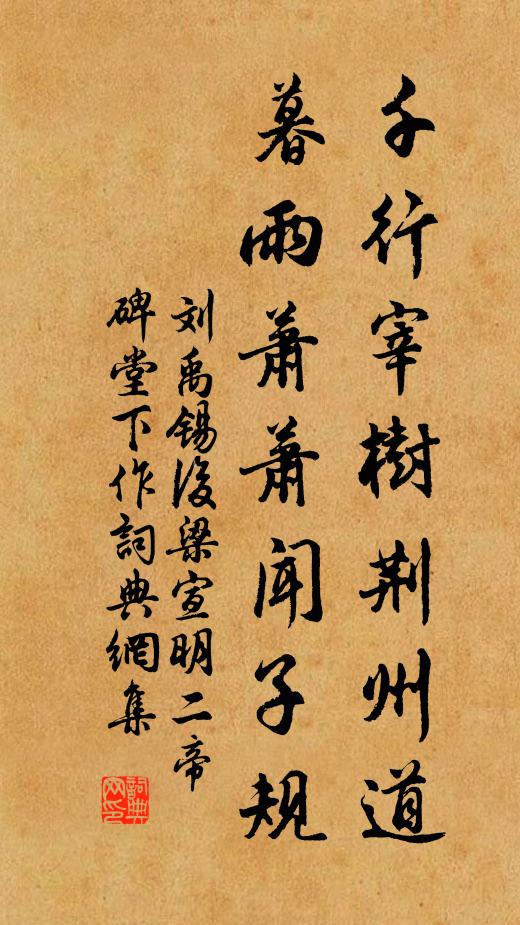 千行宰樹荆州道
暮雨蕭蕭聞子規
刘禹锡後梁宣明二帝
碑堂下作詞典網集
詞典
网印